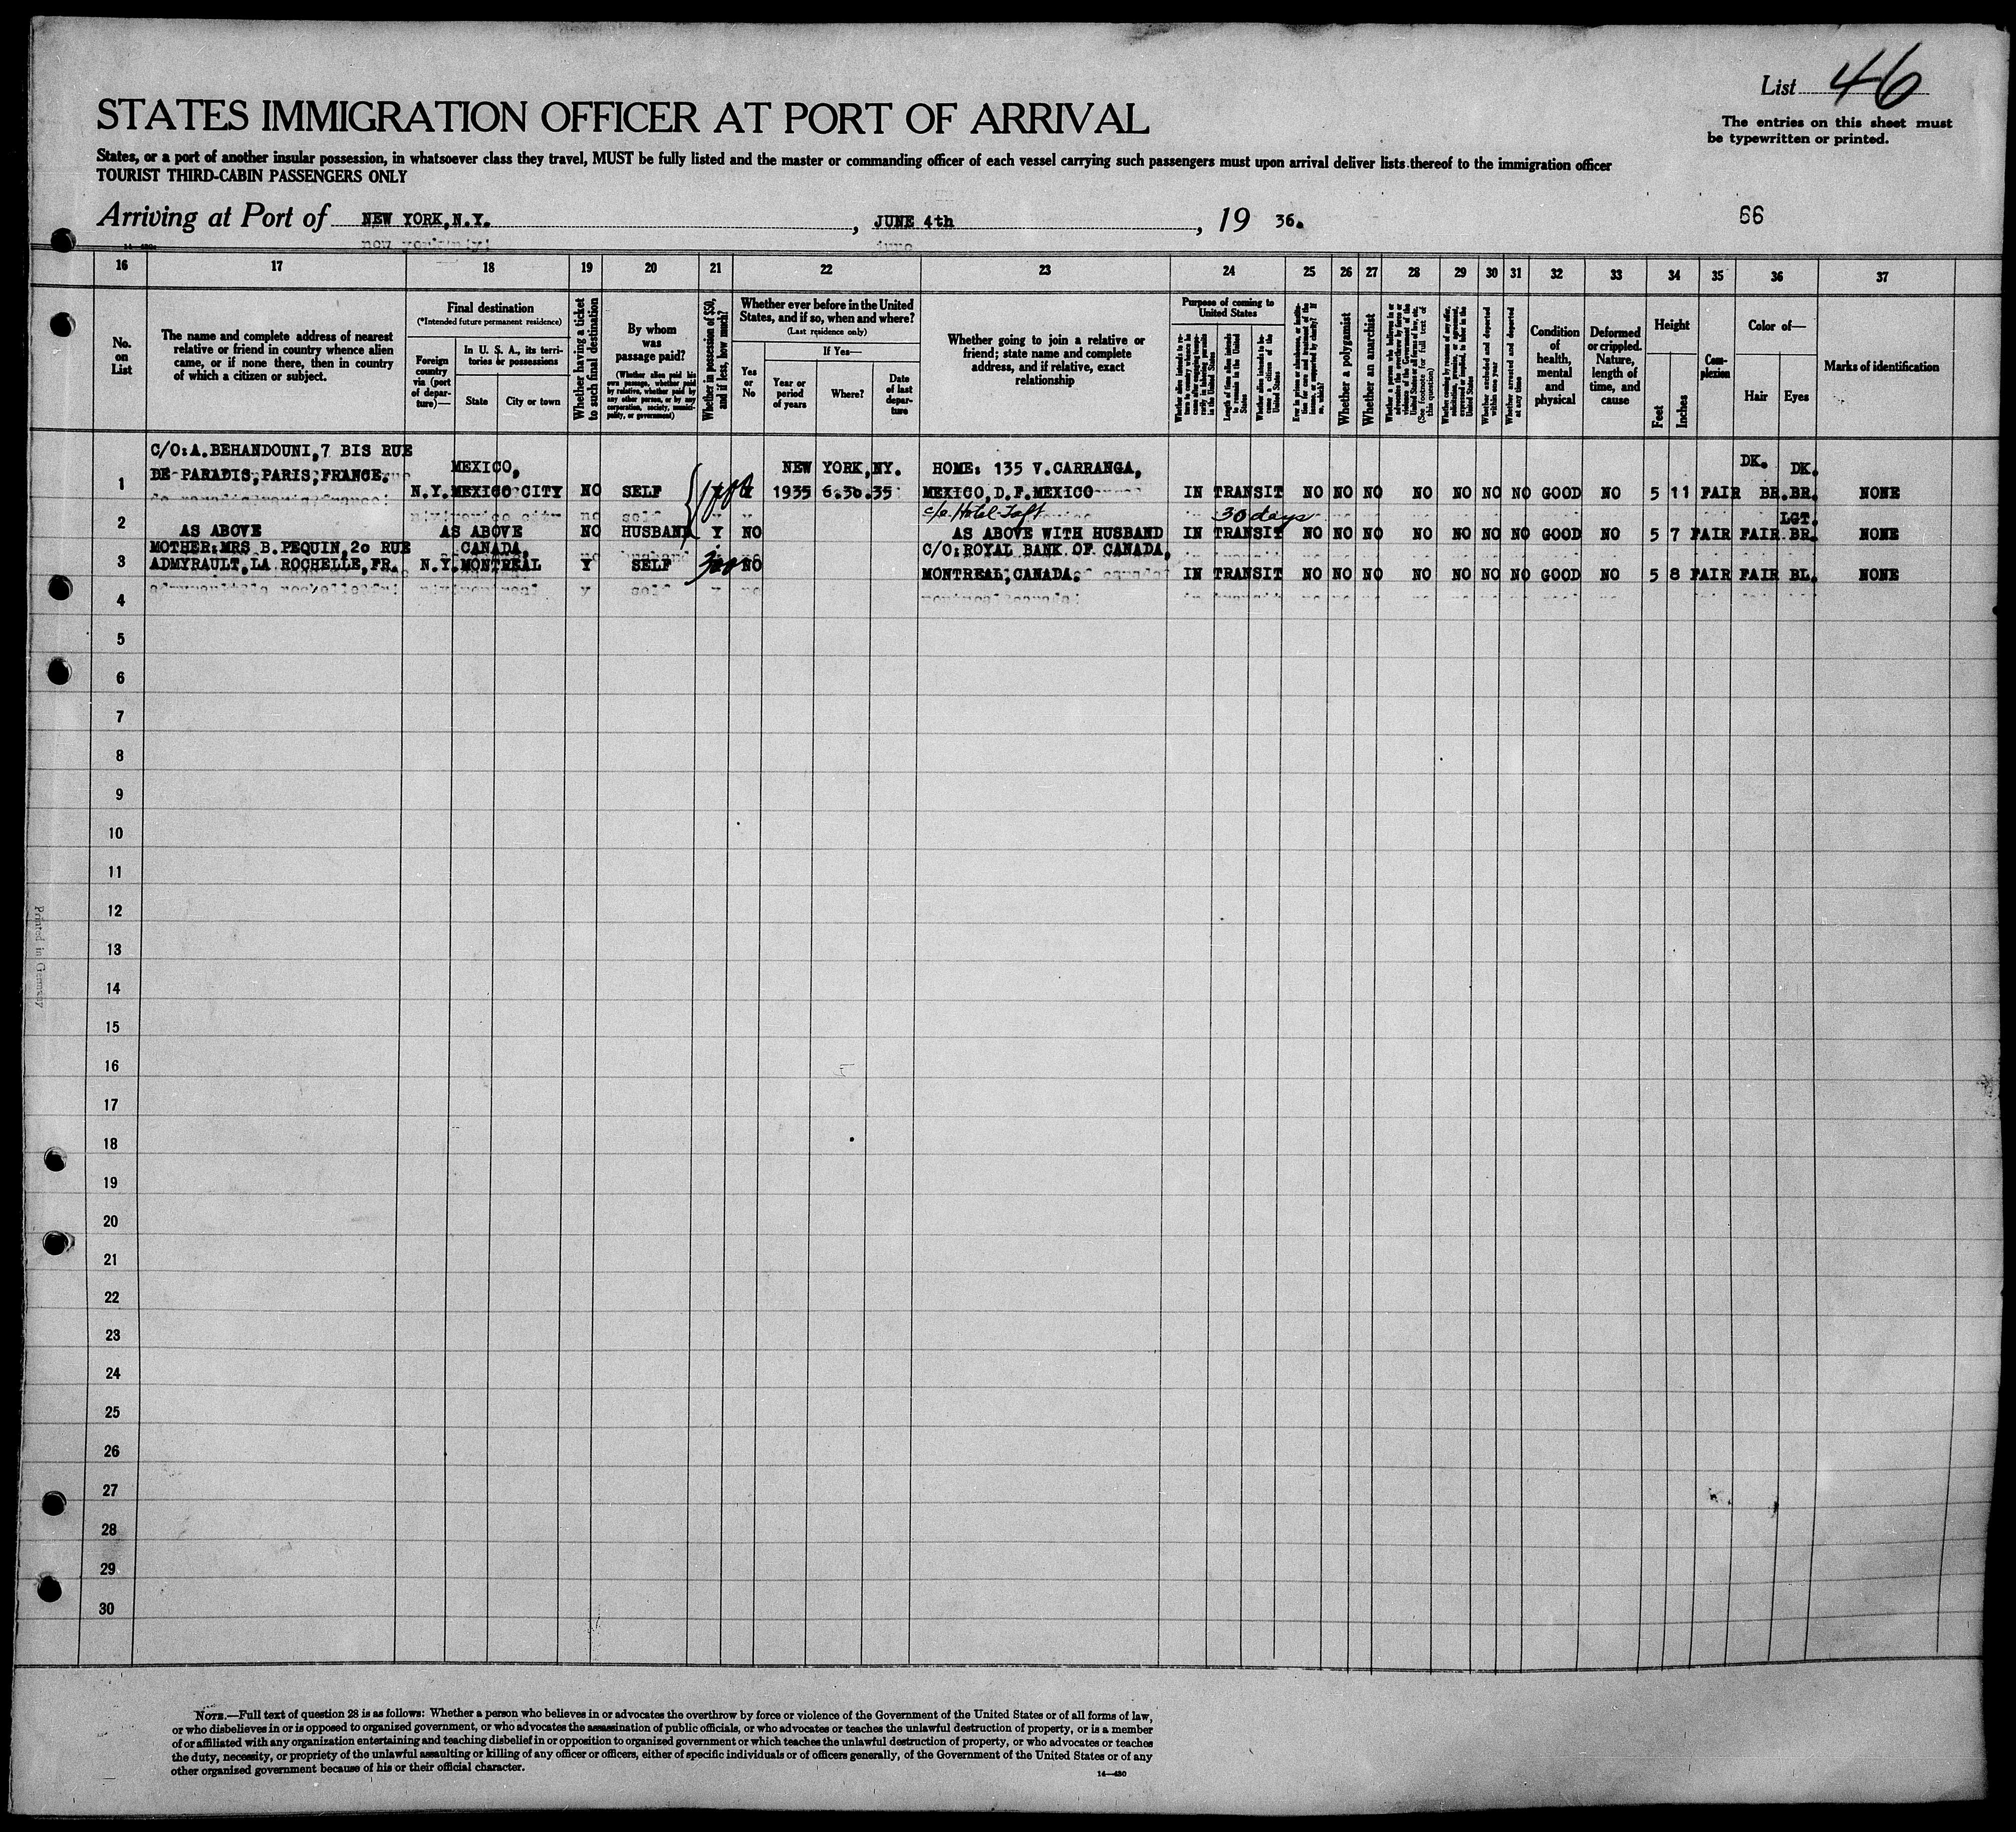 List 46
The entries on this sheet must
be typewritten or printed.
STATES IMMIGRATION OFFICER AT PORT OF ARRIVAL
States, or a port of another insular possession, in whatsoever class they travel, MUST be fully listed and the master or commanding officer of each vessel carrying such passengers must upon arrival deliver lists thereof to the immigration officer
TOURIST THIRD-CABIN PASSENGERS ONLY
Arriving at Port of NEW YORK,N.Y. , JUNE 4th , 19 36. 66
16 17 18 19 20 21 22 23 24 25 26 27 28 29 30 31 32 33 34 35 36 37
No.
on
List
The name and complete address of nearest
relative or friend in country whence alien
came, or if none there, then in country
of which a citizen or subject.
Final destination
(*Intended future permanent residence)
Foreign
country
via (port
of depar-
ture)—
In U. S. A., its terri-
tories or possessions
State
City or town
Whether having a ticket
to such final destination
By whom
was
passage paid?
(Whether alien paid his
own passage, whether paid
by relative, whether paid by
any other person, or by any
corporation, society, munici-
pality, or government)
Whether in possession of $50,
and if less, how much?
Whether ever before in the United
States, and if so, when and where?
(Last residence only)
Yes
or
No
If Yes—
Year or
period
of years
Where?
Date
of last
depar-
ture
Whether going to join a relative or
friend; state name and complete
address, and if relative, exact
relationship
Purpose of coming to
United States
Length of time alien intends
to remain in the United
States
Whether alien intends to be-
come a citizen of the
United States
Whether a polygamist
Whether an anarchist
(See footnote for full text of
this question)
Whether arrested and deported
at any time
Condition
of
health,
mental
and
physical
Deformed
or crippled.
Nature,
length of
time, and
cause
Height
Feet
Inches
Com-
plexion
Color of—
Hair
Eyes
Marks of identification
C/O:A.BEHANDOUNI,7 BIS RUE
MEXICO, NEW YORK,NY. HOME: 135 V.CARRANGA, DK. DK.
DE PARADIS,PARIS,FRANCE.
1 N.Y. MEXICO CITY NO SELF 1935 6.30.35 MEXICO,D.F.MEXICO IN TRANSIT NO NO NO NO NO NO NO GOOD NO 5 11 FAIR BR. BR. NONE
c/o Hotel Taft 30 days LGT.
2 AS ABOVE AS ABOVE NO HUSBAND Y NO AS ABOVE WITH HUSBAND IN TRANSIT NO NO NO NO NO NO NO GOOD NO 5 7 FAIR FAIR BR. NONE
MOTHER:MRS B.PEQUIN,20 RUE CANADA, C/O:ROYAL BANK OF CANADA,
3 ADMYRAULT,LA ROCHELLE,FR. N.Y. MONTREAL Y SELF 300 NO
MONTREAL,CANADA. IN TRANSIT NO NO NO NO NO NO NO GOOD NO 5 8 FAIR FAIR BL. NONE
4
5
6
7
8
9
10
11
12
13
14
15
16
17
18
19
20
21
22
23
24
25
26
27
28
29
30
Printed in Germany
NOTE.—Full text of question 28 is as follows: Whether a person who believes in or advocates the overthrow by force or violence of the Government of the United States or of all forms of law,
or who disbelieves in or is opposed to organized government, or who advocates the assassination of public officials, or who advocates or teaches the unlawful destruction of property, or is a member
of or affiliated with any organization entertaining and teaching disbelief in or opposition to organized government or which teaches the unlawful destruction of property, or who advocates or teaches
the duty, necessity, or propriety of the unlawful assaulting or killing of any officer or officers, either of specific individuals or of officers generally, of the Government of the United States or of any
other organized government because of his or their official character.
14—430